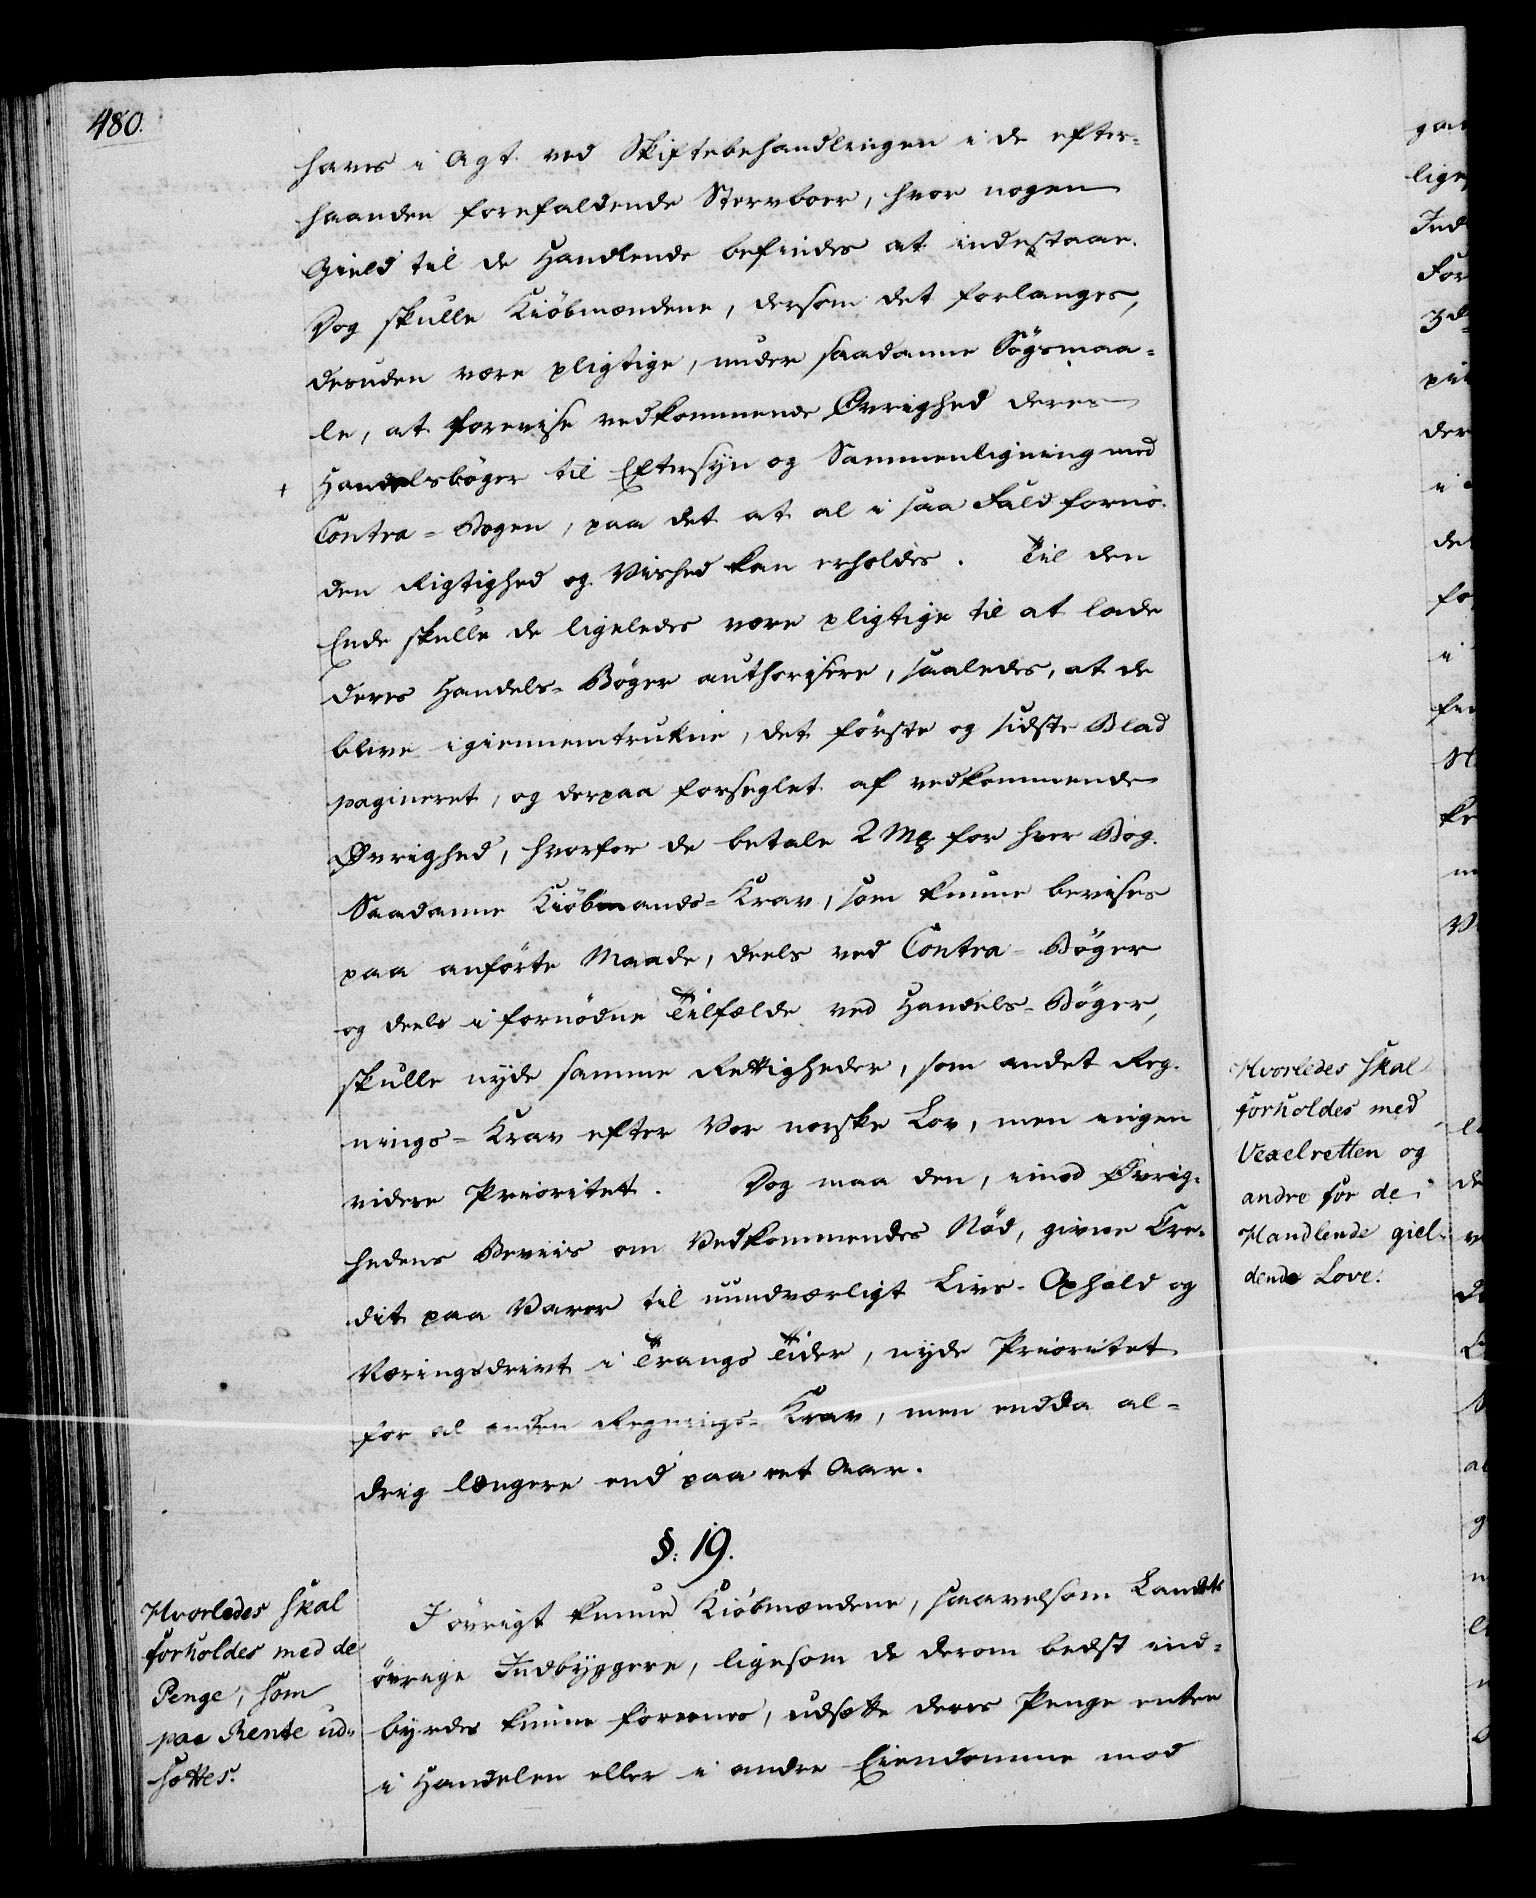 480.
haves i Agt ved Skiftebehandlingen i de efter-
haanden forefaldende Stervboer, hvor nogen
Gield til de Handlende befindes at indestaae.
Dog skulle Kiöbmændene, dersom det forlanges,
desuden være pligtige, under saadanne Sögsmaa-
le, at forevise vedkommende Øvrighed deres
Handelsböger til Eftersyn og Sammenligning med
Contra-Bogen, paa det at al i saa Fald fornö-
den Rigtighed og Vished kan erholdes. Til den
Ende skulle de ligeledes være pligtige til at lade
deres Handels-Böger authorisere, saaledes, at de
blive igiennemtrukne, det förste og sidste Blad
pagineret, og derpaa forseglet af vedkommende
Øvrighed, hvorfor de betale 2 Mk for hver Bog.
Saadanne Kiöbmands-Krav, som kunne bevises
paa anförte Maade, deels ved Contra-Böger
og deels i fornödne Tilfælde ved Handels-Böger,
skulle nyde samme Rettigheder, som andet Reg-
nings-Krav efter Vor norske Lov, men ingen
videre Prioritet. Dog maa den, imod Øvrig-
hedens Beviis om Vedkommendes Nöd, givne Cre-
dit paa Varer til uundværligt Livs-Ophold og
Næringsdrivt i Trangs Tider, nyde Prioritet
for al anden Regnings-Krav, men endda al-
drig længere end paa eet Aar.
§. 19.
Hvorledes skal
forholdes med de
Penge, som
paa Rente ud-
sættes.
I övrigt kunne Kiöbmændene, saavelsom Landets
övrige Indbyggere, ligesom de derom bedst ind-
byrdes kunne forenes, udsætte deres Penge enten
i Handelen eller i andre Eiendomme mod
Hvorledes skal
forholdes med
Vexelretten og
andre for de
Handlende giel-
dende Love.